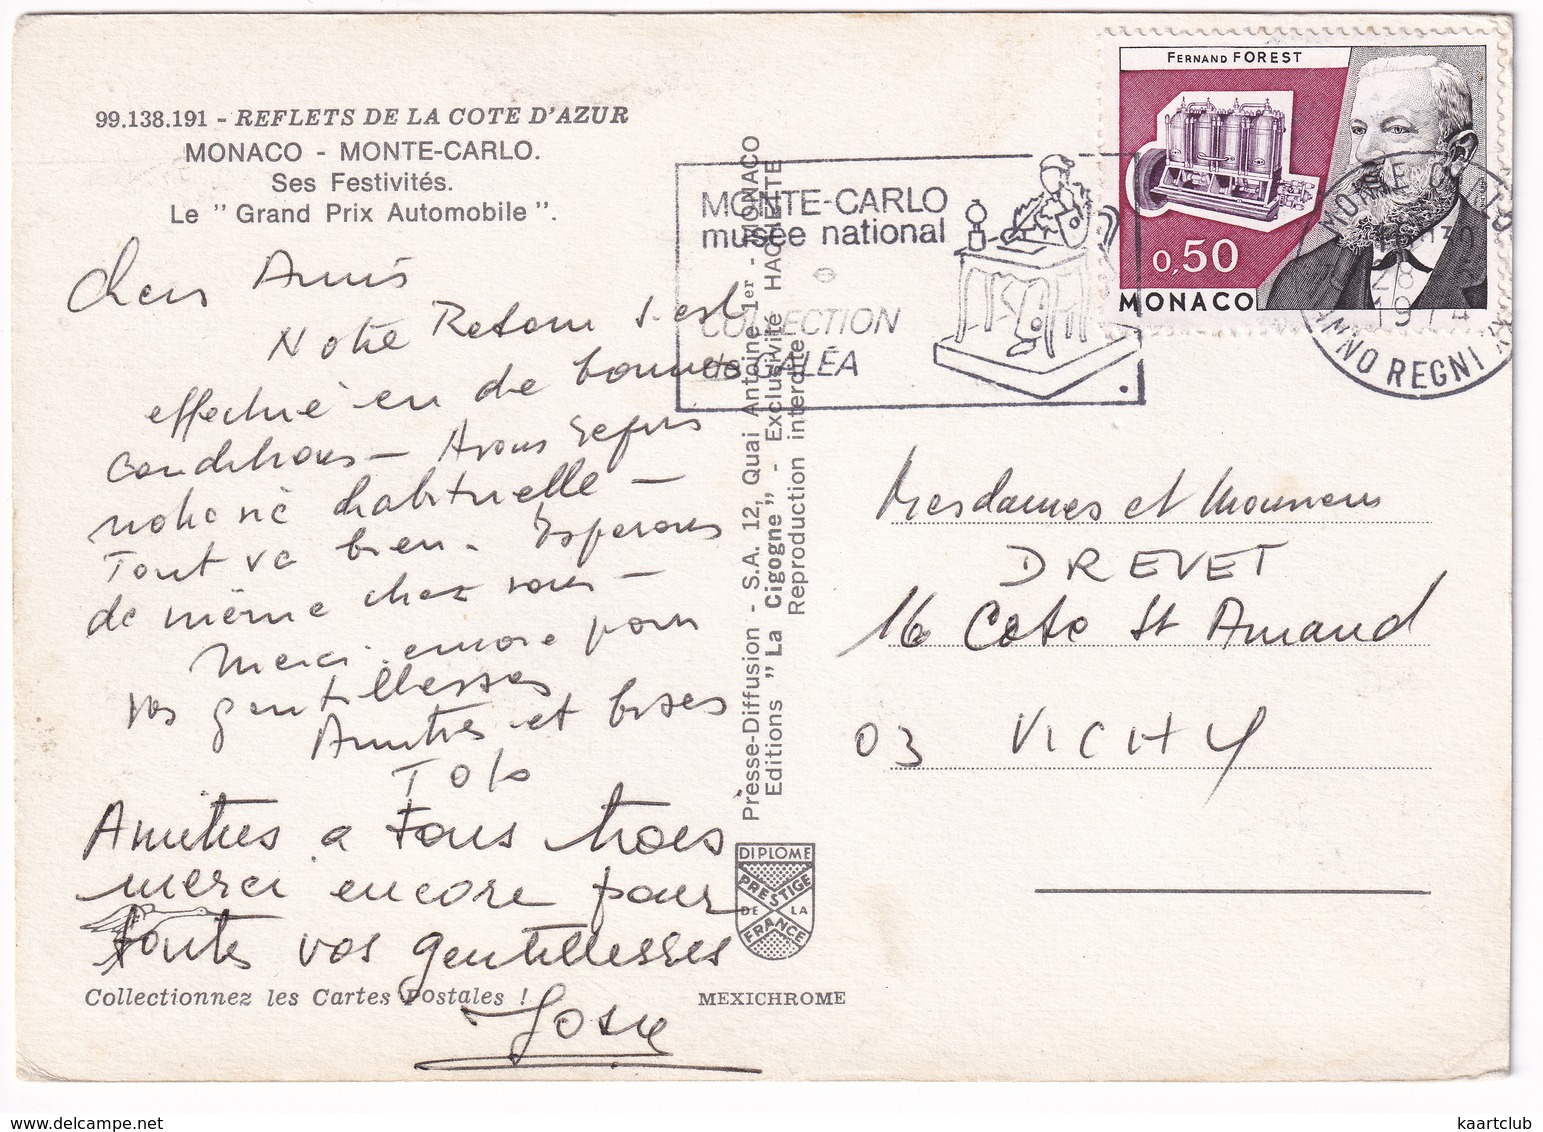 99.138.191 - REFLETS DE LA COTE D'AZUR
MONACO - MONTE-CARLO.
Ses Festivités.
Le " Grand Prix Automobile ".
Chers Amis
Notre Retour s'est
effectué en de bonnes
conditions — Avons repris
notre vie habituelle —
Tout va bien. Espérons
de même chez vous —
Merci encore pour
vos gentillesses
Amitiés et bises
Toto
Amitiés a tous trois
merci encore pour
toutes vos gentillesses
Josie
Collectionnez les Cartes Postales !
MEXICHROME
Presse-Diffusion - S.A. 12, Quai Antoine 1er - MONACO
Editions " La Cigogne " - Exclusivité HACHETTE
Reproduction interdite
DIPLOME
PRESTIGE
DE LA
FRANCE
MONTE-CARLO
musée national
COLLECTION
de GALÉA
FERNAND FOREST
0,50
MONACO
MONTE-CARLO
28
1974
ANNO REGNI
Mesdames et Monsieur
DREVET
16 Cote St Amand
03 VICHY
www.delcampe.net
kaartclub